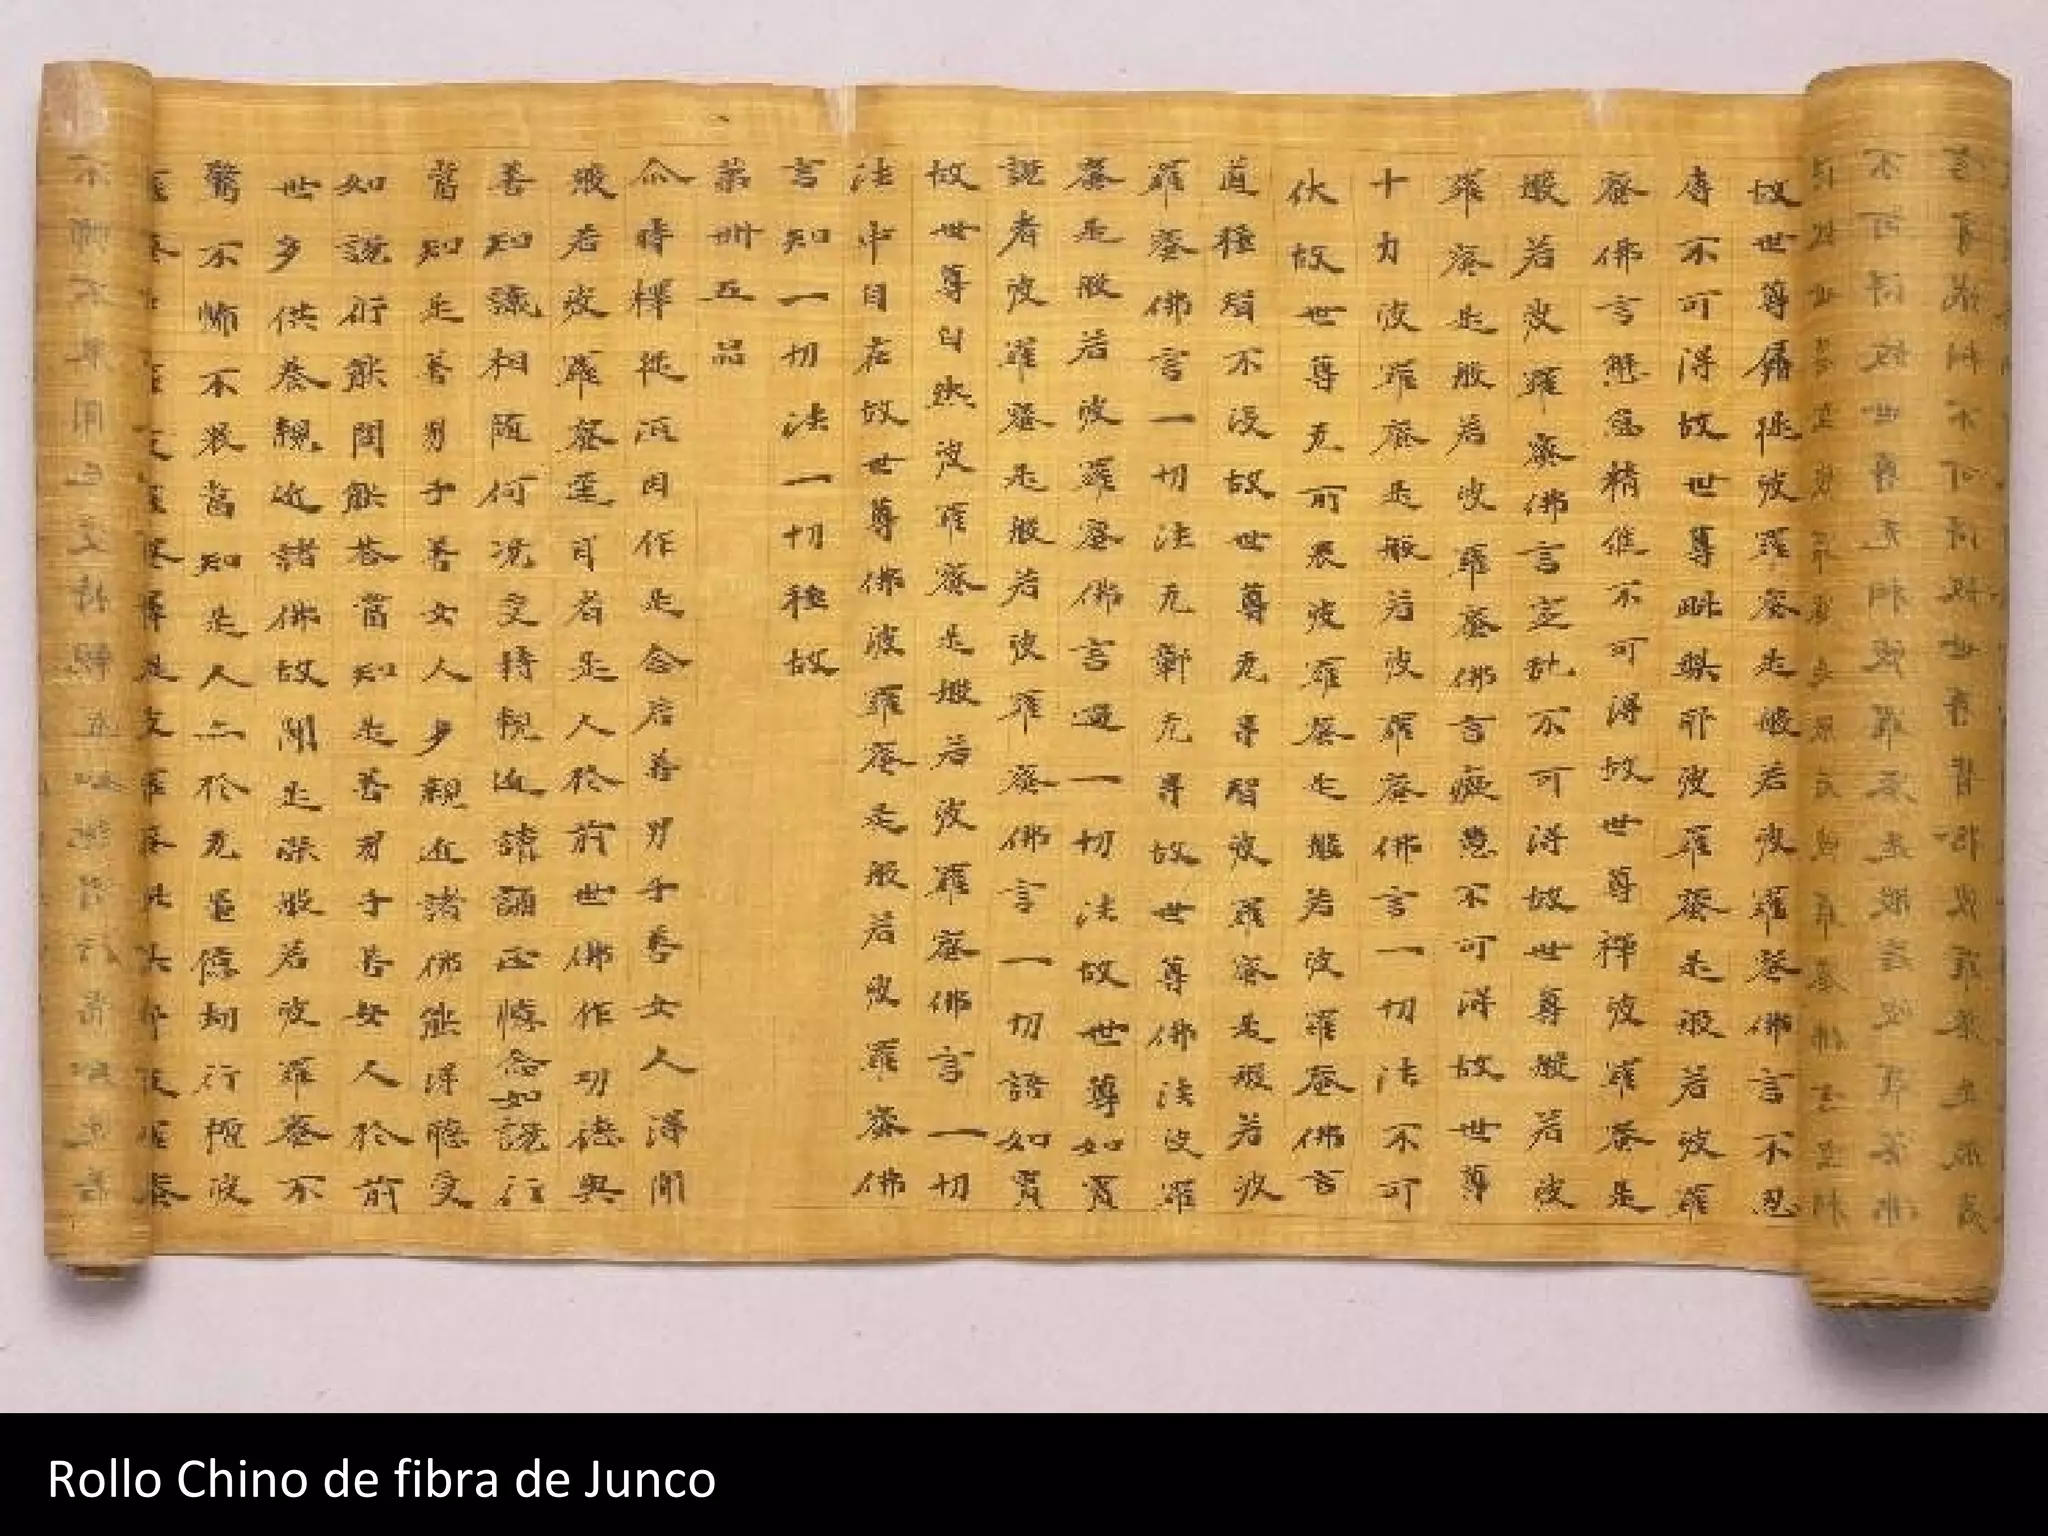 故世尊羼提波羅蜜是般若波羅蜜佛言不忍
辱不可得故世尊毗梨耶波羅蜜是般若波羅
蜜佛言懈怠精進不可得故世尊禪波羅蜜是
般若波羅蜜佛言定亂不可得故世尊般若波
羅蜜是般若波羅蜜佛言癡慧不可得故世尊
十力波羅蜜是般若波羅蜜佛言一切法不可
伏故世尊无所畏波羅蜜是般若波羅蜜佛言
道種智不沒故世尊无㝵智波羅蜜是般若波
羅蜜佛言一切法无鄣无㝵故世尊佛法波羅
蜜是般若波羅蜜佛言過一切法故世尊如實
說者波羅蜜是般若波羅蜜佛言一切語如實
故世尊自然波羅蜜是般若波羅蜜佛言一切
法中自在故世尊佛波羅蜜是般若波羅蜜佛
言知一切法一切種故
第卌五品
尒時釋提洹因作是念若善男子善女人得聞
般若波羅蜜逕耳者是人於前世佛作功德與
善知識相隨何況受持親近讀誦正憶念如說行
當知是善男子善女人多親近諸佛能得聽受
如說行能問能荅當知是善男子善女人於前
世多供養親近諸佛故聞是深般若波羅蜜不
驚不怖不畏當知是人亦於无量億劫行檀波
Rollo Chino de fibra de Junco